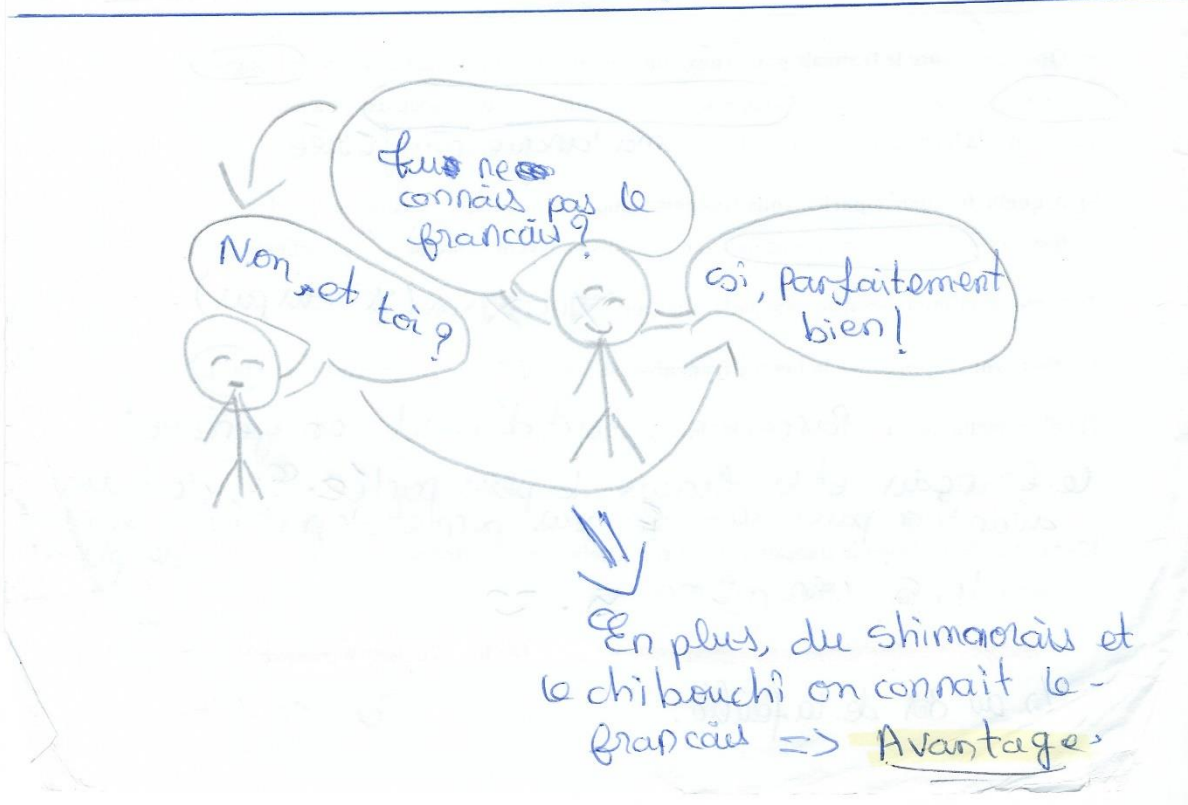 Tu ne
connais pas le
francais?
Non, et
toi?
Si, parfaitement
bien!
En plus, du shimaorais et
le chibouchi on connait le
francais => Avantage.